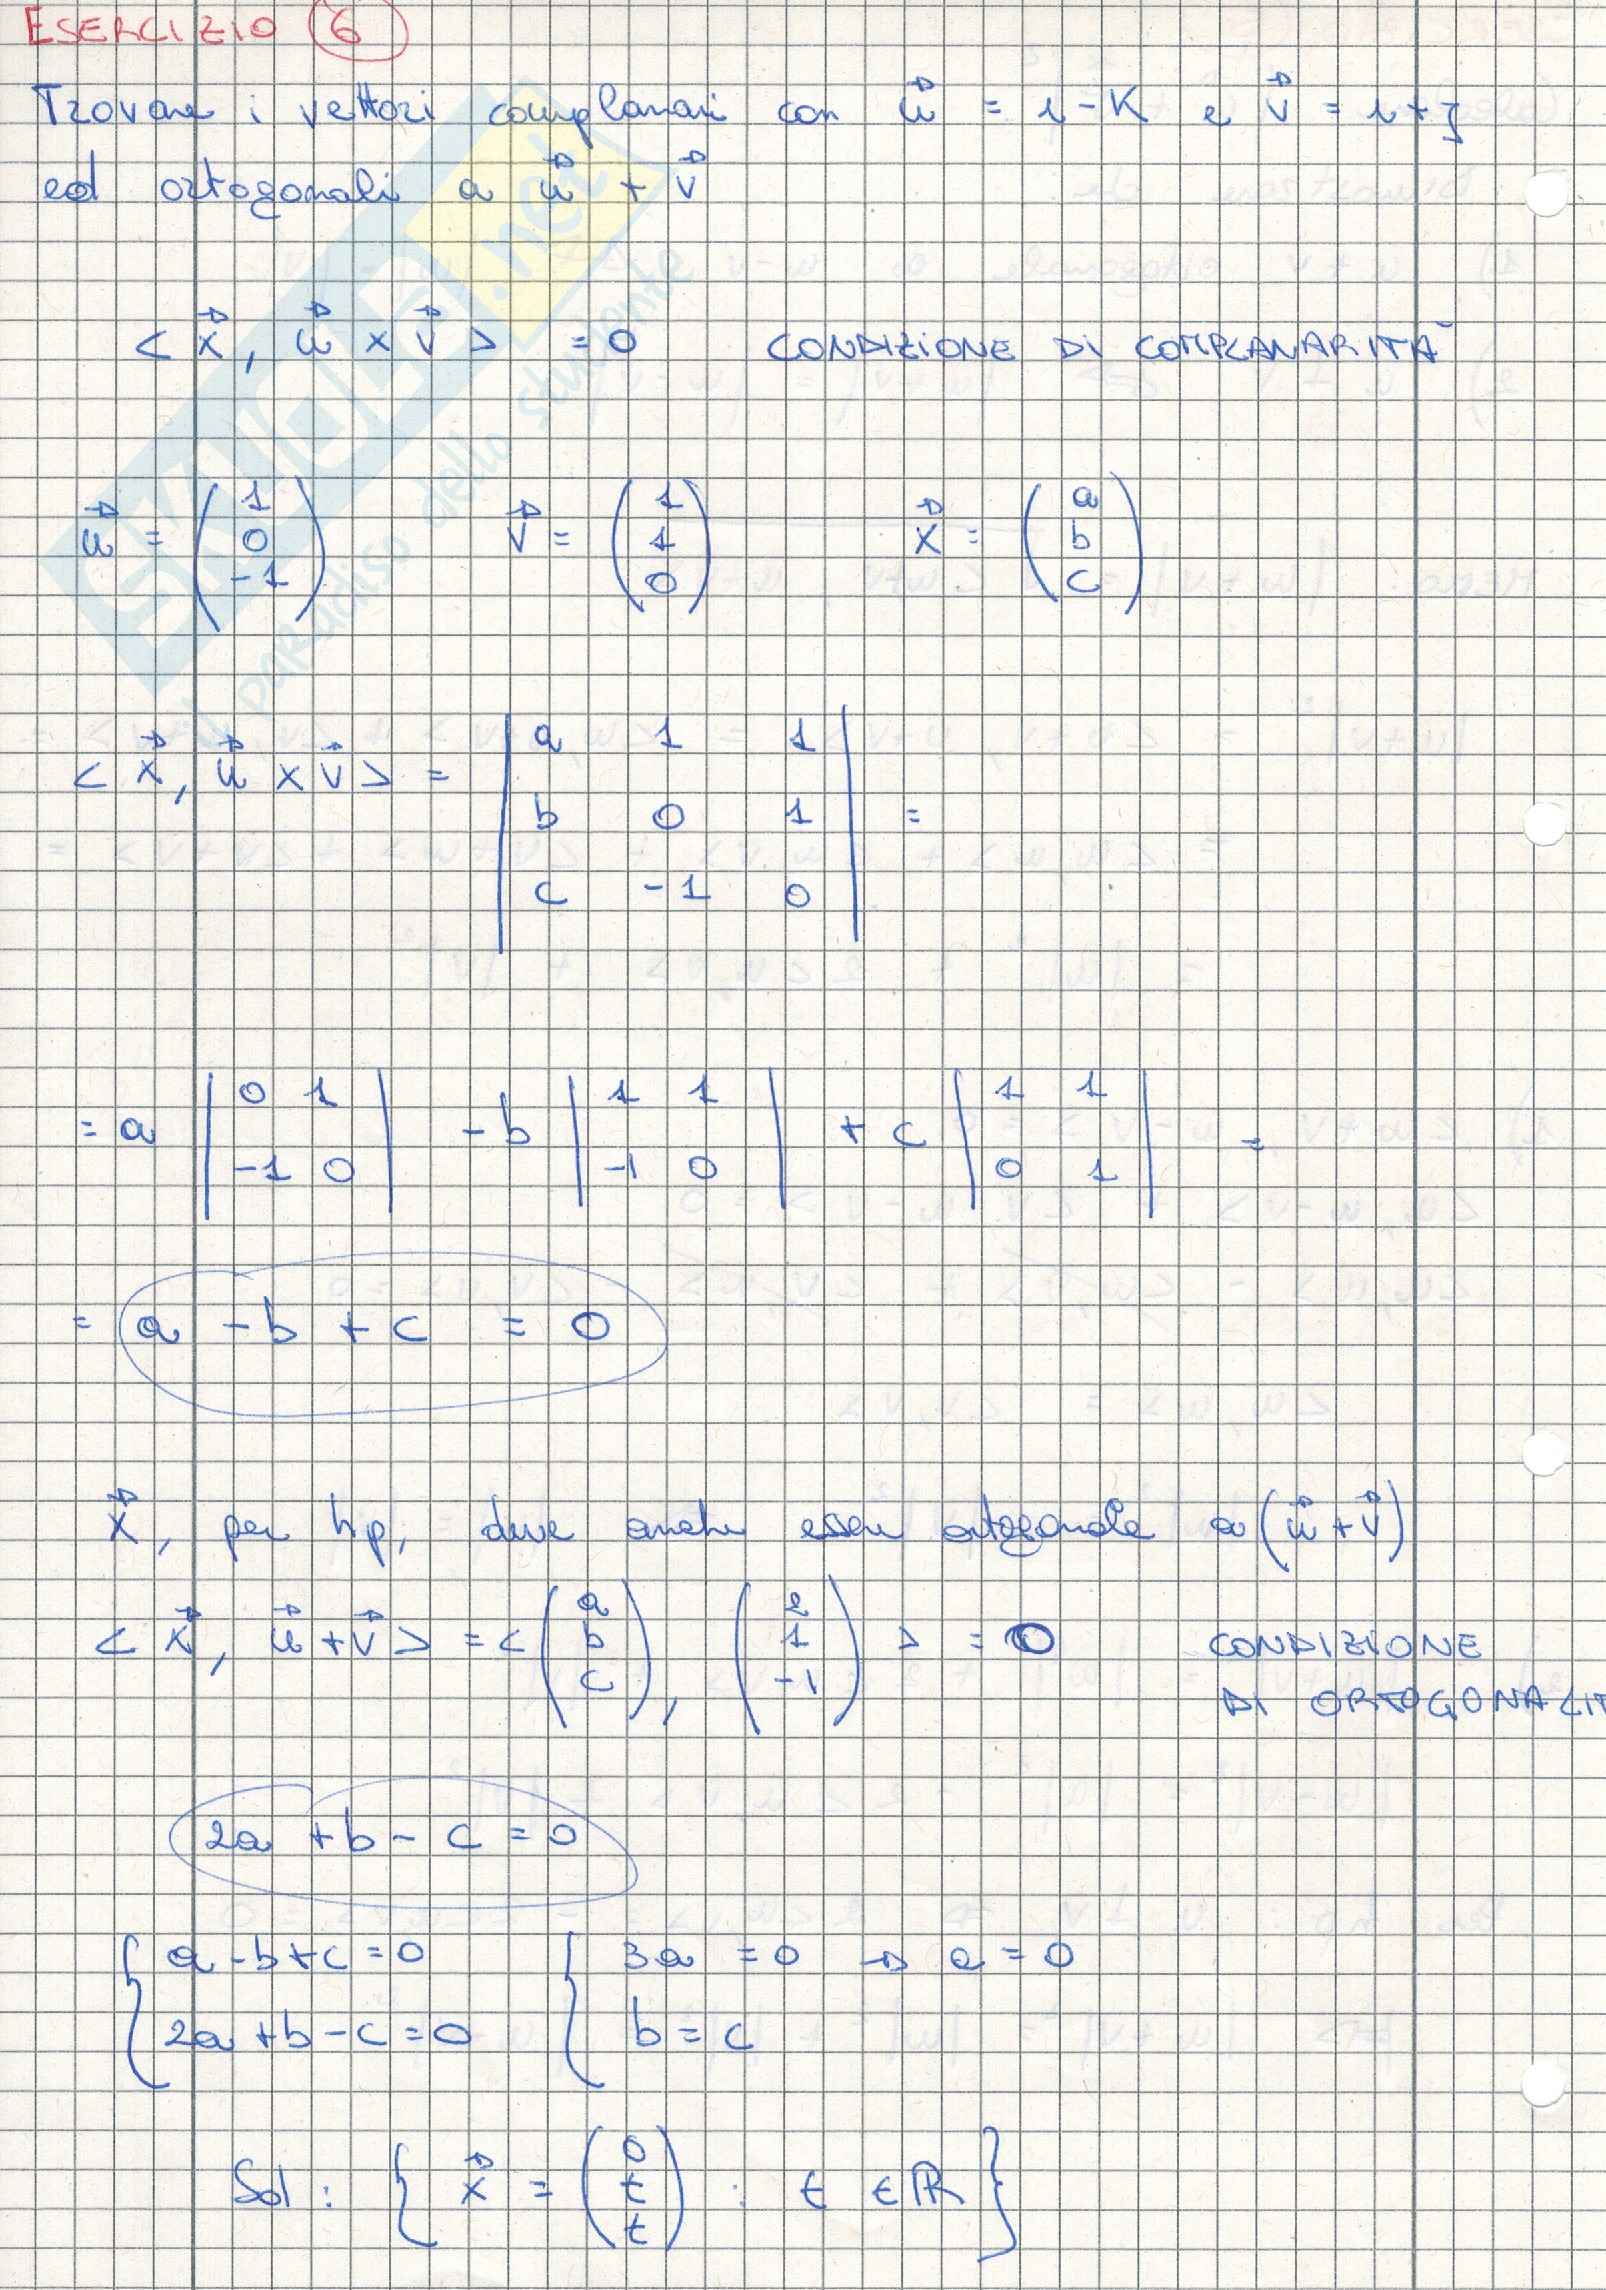 ESERCIZIO 6
Trovare i vettori complanari con u⃗ = i - K e v⃗ = i + j
ed ortogonali a u⃗ + v⃗
< x⃗, u⃗ x v⃗ > = 0 CONDIZIONE DI COMPLANARITÀ
u⃗ = (1 0 -1) v⃗ = (1 1 0) x⃗ = (a b c)
< x⃗, u⃗ x v⃗ > = | a 1 1 |
| b 0 1 | =
| c -1 0 |
= a | 0 1 | - b | 1 1 | + c | 1 1 | =
| -1 0 | | -1 0 | | 0 1 |
= a - b + c = 0
x⃗, per hp, deve anche essere ortogonale a (u⃗ + v⃗)
< x⃗, u⃗ + v⃗ > = < (a b c), (2 1 -1) > = 0 CONDIZIONE
DI ORTOGONALIT
2a + b - c = 0
{ a - b + c = 0 { 3a = 0 → a = 0
2a + b - c = 0 b = c
Sol : { x⃗ = (0 t t) : t ∈ ℝ }
SKUOLA.net
il paradiso dello studente